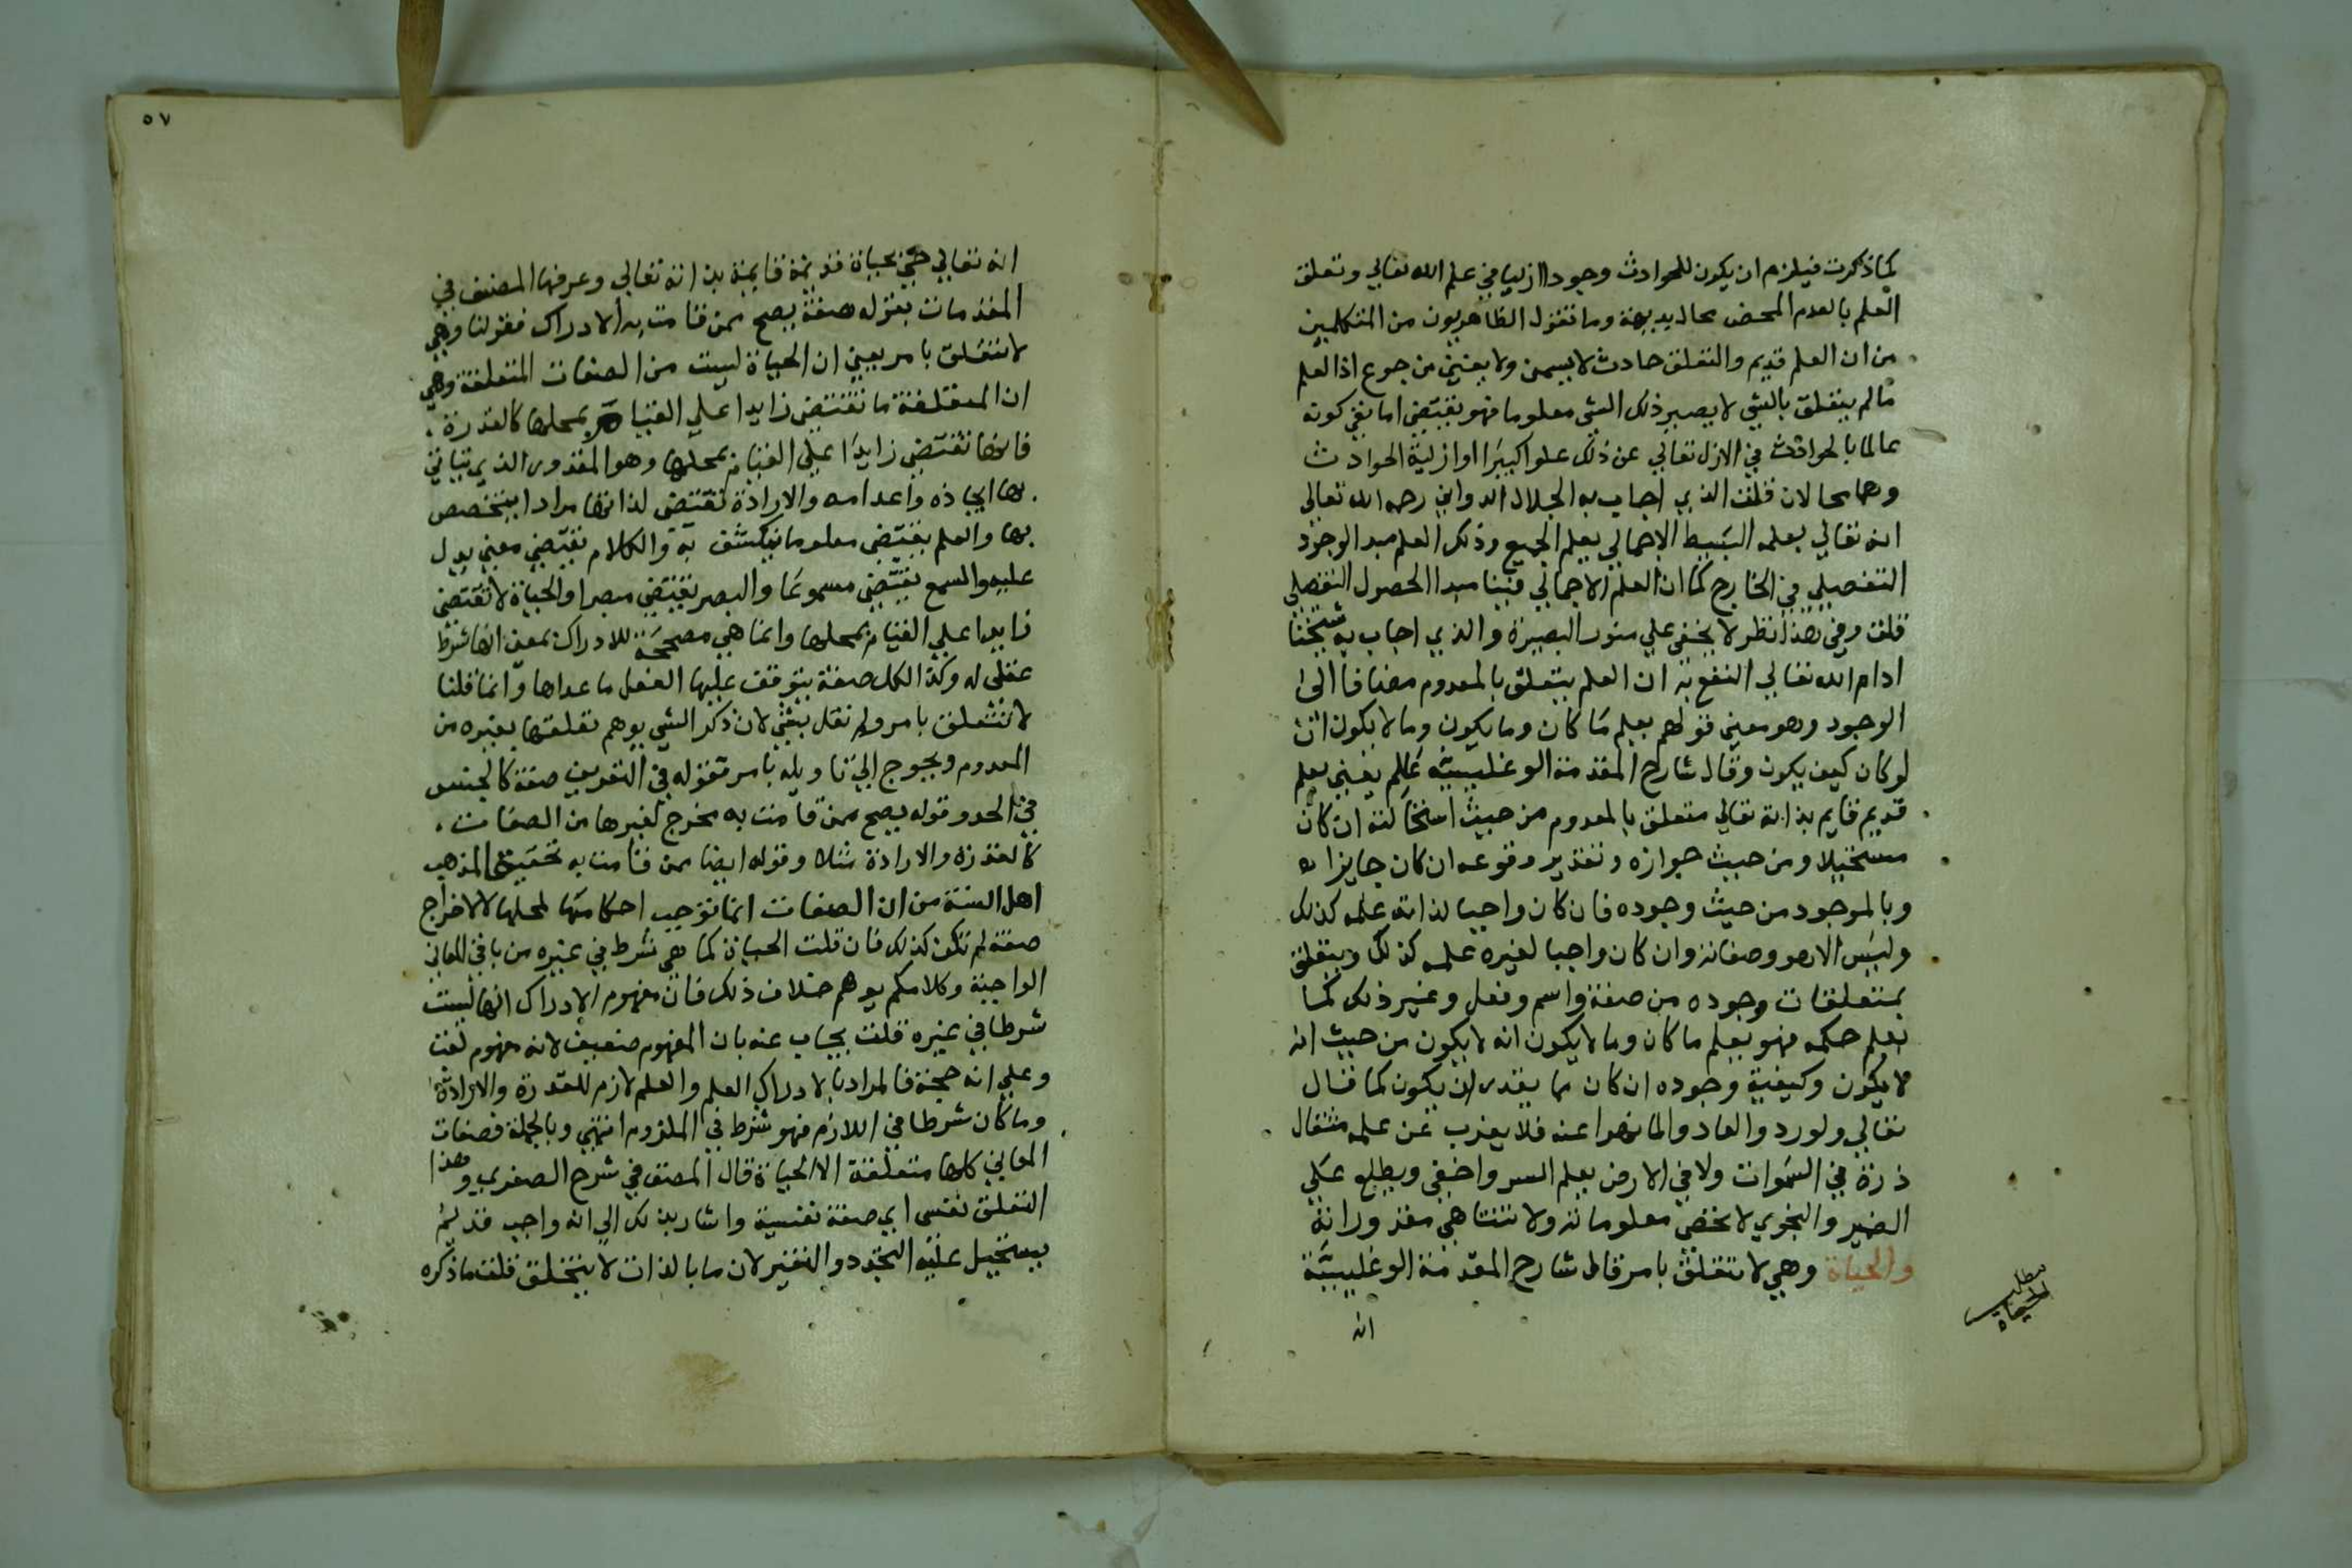 كما ذكرت فيلزم ان يكون للحوادث وجودا ازليا في علم الله تعالي وتعلق
العلم بالعدم المحض محال بديهة وما تقول الظاهريون من المتكلمين
من ان العلم قديم والتعلق حادث لا يسمن ولا يغني من جوع اذ العلم
ما لم يتعلق بالشي لا يصير ذلك الشي معلوما فهو يقتضي اما نفي كونه
عالما بالحوادث في الازل تعالي عن ذلك علوا كبيرا او ازلية الحوادث
وهما محالان قلت الذي اجاب به الجلال الدواني رحمه الله تعالي
انه تعالي يعلمه البسيط الاجمالي يعلم الجميع وذلك العلم مبدا لوجود
التفصيلي في الخارج كما ان العلم الاجمالي فينا مبدا لحصول التفصيلي
قلت وفي هذا نظر لا يخفي علي منور البصيرة والذي اجاب به شيخنا
ادام الله تعالي النفع به ان العلم يتعلق بالمعدوم مضافا الي
الوجود وهو معني قولهم يعلم ما كان وما يكون وما لا يكون ان
لو كان كيف يكون وقال شارح المقدمة الوغليسية عالم يعني بعلم
قديم قايم بذاته تعالي متعلق بالمعدوم من حيث استحالته ان كان
مستحيلا ومن حيث جوازه وتقدير وقوعه ان كان جايزا
وبالموجود من حيث وجوده فان كان واجبا لذاته علمه كذلك
وليس الا هو وصفاته وان كان واجبا لغيره علمه كذلك ويتعلق
بمتعلقات وجوده من صفة واسم وفعل وغير ذلك كما
يعلم حكمه فهو يعلم ما كان وما لا يكون انه لا يكون من حيث انه
لا يكون وكيفية وجوده ان كان مما يقدر ان يكون كما قال
تعالي ولو ردوا لعادوا لما نهوا عنه فلا يعزب عن علمه مثقال
ذرة في السموات ولا في الارض يعلم السر واخفي ويطلع علي
الضمير والنجوي لا تحصي معلوماته ولا تتناهي مقدوراته
والحياة وهي لا تتعلق بامر قال شارح المقدمة الوغليسية
مطلب
الحياة
انه
٥٧
انه تعالي حي بحياة قديمة قايمة بذاته تعالي وعرفها المصنف في
المقدمات بقوله صفة يصح لمن قامت به الادراك فقولنا وهي
لا تتعلق بامر يعني ان الحياة ليست من الصفات المتعلقة وهي
ان المتعلقة ما تقتضي زايدا علي القيام بمحلها كالقدرة
فانها تقتضي زايدا علي القيام بمحلها وهو المقدور الذي يتاتي
بها ايجاده واعدامه والارادة تقتضي لذاتها مرادا يتخصص
بها والعلم يقتضي معلوما ينكشف به والكلام يقتضي معني يدل
عليه والسمع يقتضي مسموعا والبصر يقتضي مبصرا والحياة لا تقتضي
زايدا علي القيام بمحلها وانما هي مصححة للادراك بمعني انها شرط
عقلي له وكذا لكل صفة يتوقف عليها الفعل ما عداها وانما قلنا
لا تتعلق بامر ولم نقل بشي لان ذكر الشي يوهم تعلقها بغيره من
المعدوم ويحوج الي تاويله بامر فقوله في التعريف صفة كالجنس
في الحد وقوله يصح لمن قامت به مخرج لغيرها من الصفات
كالقدرة والارادة مثلا وقوله ايضا لمن قامت به تحقيق المذهب
اهل السنة من ان الصفات انما توجب احكامها لمحلها لا لاخراج
صفة لم تكن كذلك فان قلت الحياة كما هي شرط في غيره من باقي المعاني
الواجبة وكلامكم يوهم خلاف ذلك فان مفهوم الادراك انها ليست
شرطا في غيره قلت يجاب عنه بان المفهوم ضعيف لانه مفهوم لقب
وعلي انه حجة فالمراد بالادراك العلم والعلم لازم للقدرة والارادة
وما كان شرطا في اللازم فهو شرط في الملزوم انتهي وبالجملة فصفات
المعاني كلها متعلقة الا الحياة قال المصنف في شرح الصغري وهذا
التعلق نفسي اي صفة نفسية واشار بذلك الي انه واجب قديم
يستحيل عليه التجدد والتغير لان ما بالذات لا يتخلف قلت ما ذكره